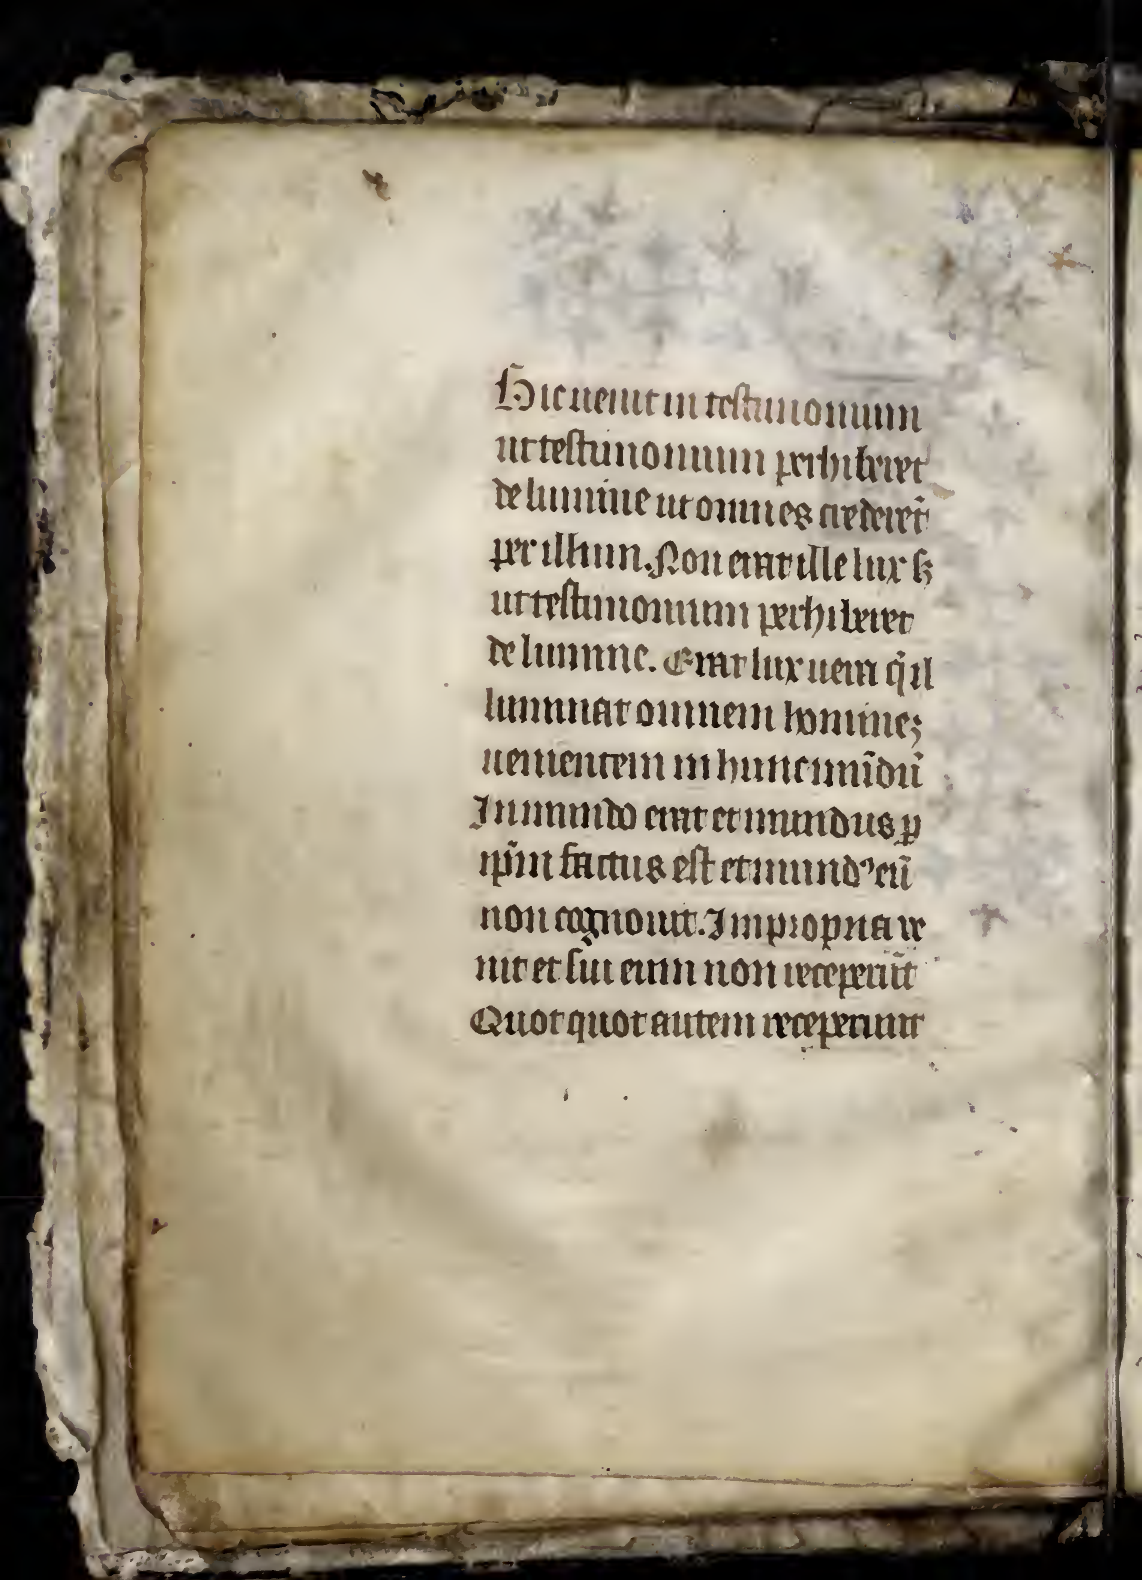 Hic uenit in testimonium
ut testimonium perhiberet
de lumine ut omnes crederēt
per illum. Non erat ille lux sꝫ
ut testimonium perhiberet
de lumine. Erat lux uera q̄ il
luminat omnem homineꝫ
uenientem in hunc mūdū
In mundo erat et mundus ꝑ
ip̄m factus est et mundꝰ eū
non cognouit. In propria ve
nit et sui eum non receperūt
Quotquot autem receperunt